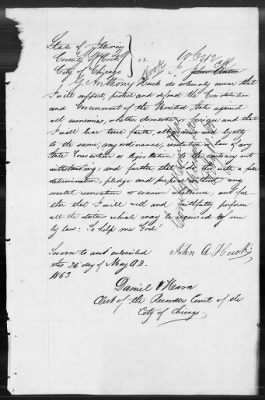 State of Illinois
County of Cook } ss
City of Chicago
I Anthony Huck do solemnly swear that
I will support, protect and defend the Constitution
and Government of the United States against
all enemies, whether domestic or foreign and that
I will bear true faith, allegiance and loyalty
to the same, any ordinance, resolution or law of any
State Convention or legislature to the contrary not
withstanding; and further that I do this with a full
determination, pledge and purpose, without any
mental reservation or evasion whatsoever, and for
the that I will well and faithfully perform
all the duties which may be required of me
by law: So help me God!
Sworn to and subscribed
the 26 day of May A.D.
1863
John A. Huck
Daniel O'Hara
Clerk of the Recorders Court of the
City of Chicago